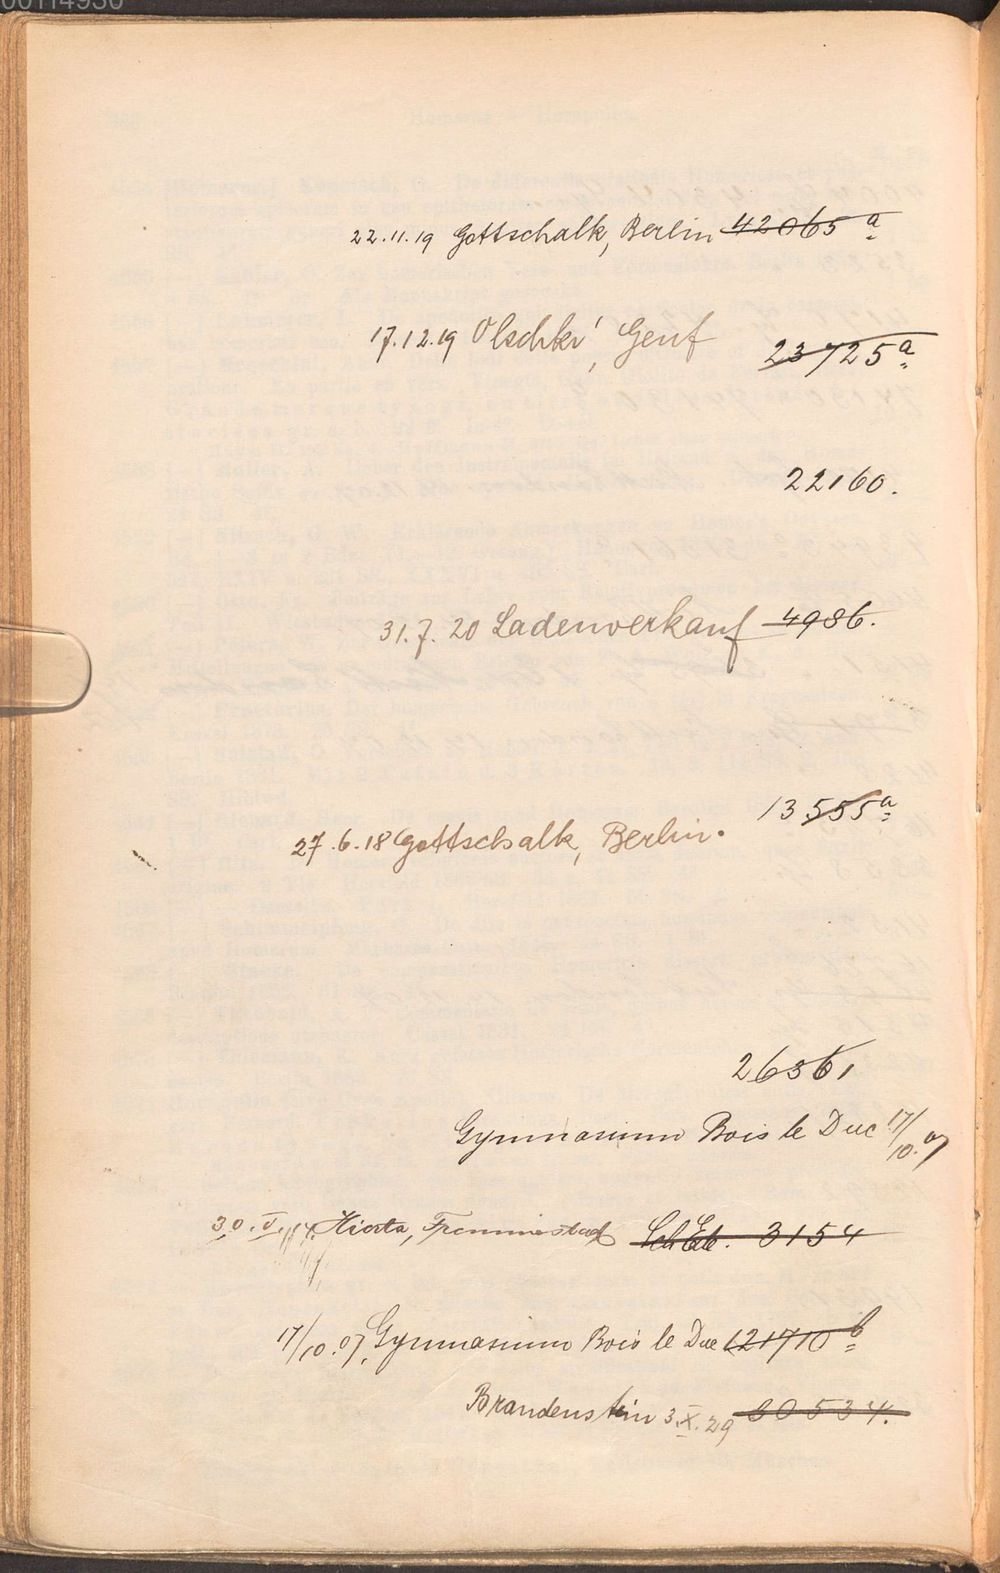 22.11.19 Gottschalk, Berlin 42065 a
17.12.19 Olschki, Genf 23725 a
22160.
31.7.20 Ladenverkauf 4986.
13555 a
27.6.18 Gottschalk, Berlin.
26361
Gymnasium Bois le Duc 17/10.07
30.V.14. Hierta, 3154
17/10.07, Gymnasium Bois le Duc 121710 b
Brandenstein 3.X.29 30534.